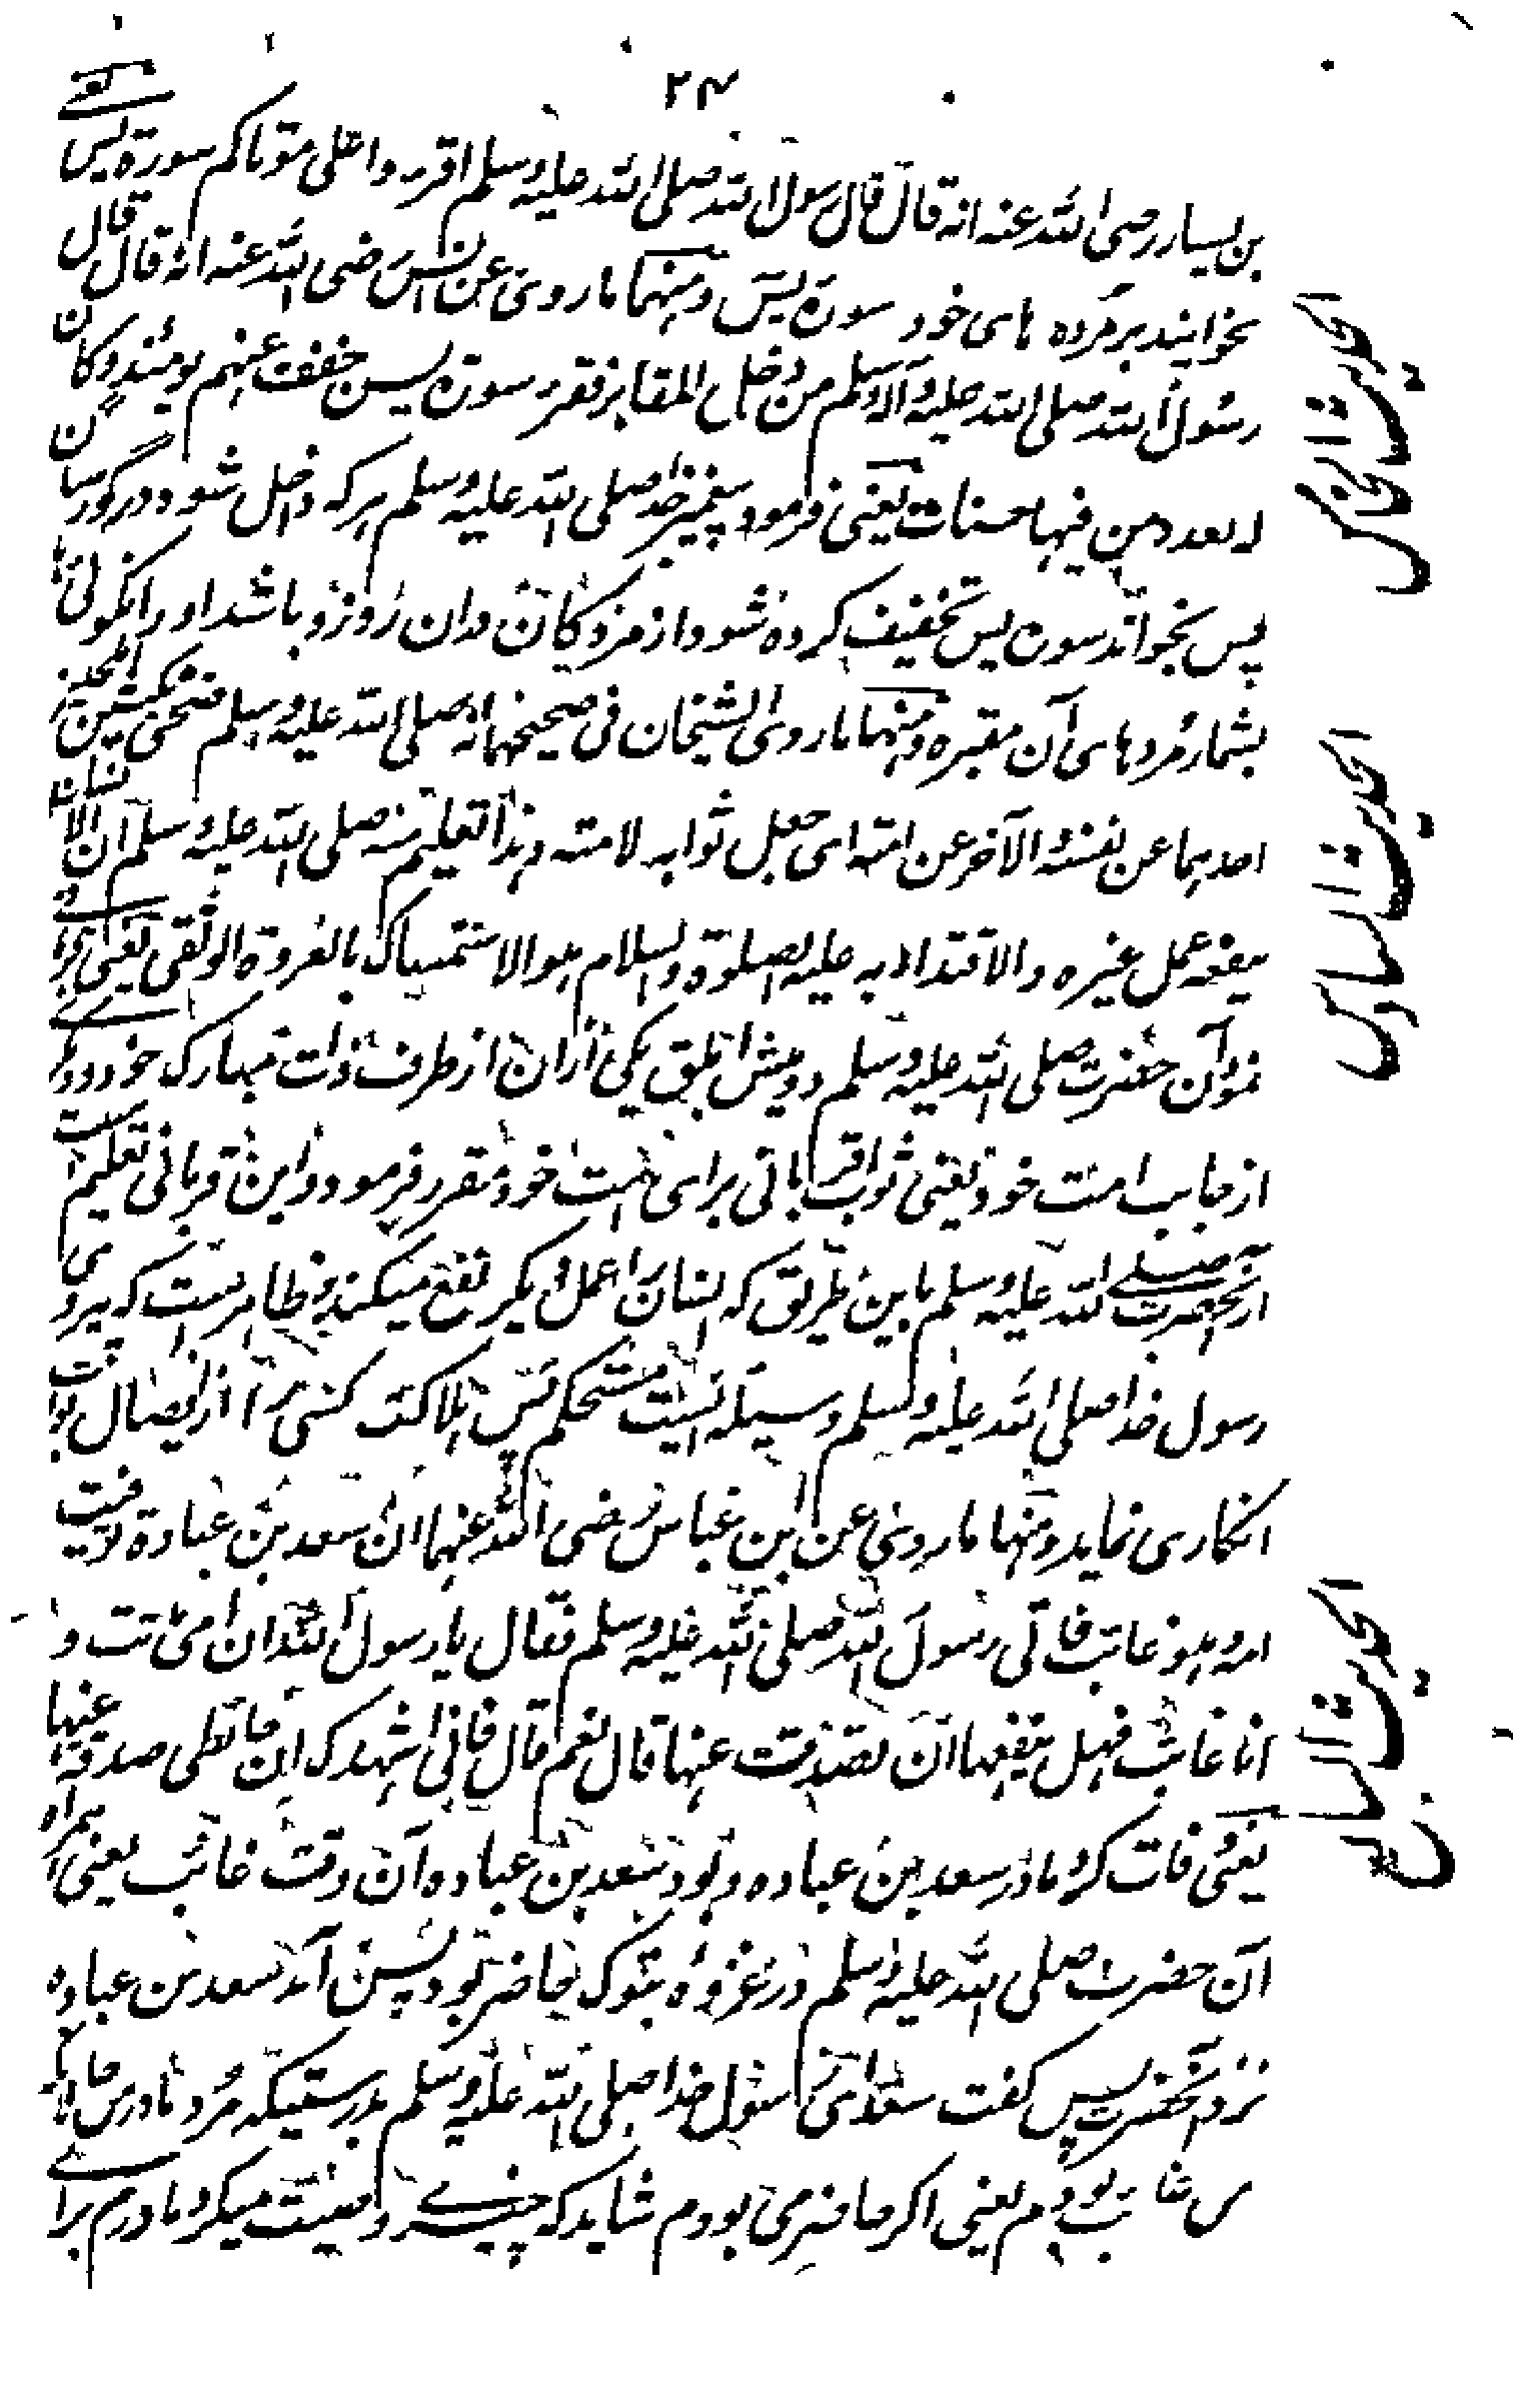 ۲۴
بن یسار رضی الله عنه انه قال قال رسول الله صلی الله علیه وسلم اقرءوا علی موتاکم سورة یس یعنے
بخوانید بر مرده های خود سورة یس ومنها ما روی عن انس رضی الله عنه انه قال قال
رسول الله صلی الله علیه وآله وسلم من دخل المقابر فقرء سورة یس خفف عنهم یومئذ وکان
له بعدد من فیها حسنات یعنی فرمود پیغمبر خدا صلی الله علیه وسلم هرکه داخل شود در گورستان
پس بخواند سورة یس تخفیف کرده شود از مردگان دران روز و باشد او را نکوئیها
بشمار مردهای آن مقبره ومنها ما روی الشیخان فی صحیحهما انه صلی الله علیه وسلم ضحی بکبشین املحین
احدهما عن نفسه والآخر عن امته ای جعل ثوابه لامته وهذا تعلیم منه صلی الله علیه وسلم ان الانسان
ینفعه عمل غیره والاقتداء به علیه الصلوة والسلام هو الاستمساک بالعروة الوثقی یعنی
نمود آن حضرت صلی الله علیه وسلم دو میش ابلق یکی ازان از طرف ذات مبارک خود و دیگر
از جانب امت خود یعنی ثواب قربانی برای امت خود مقرر فرمود و این قربانی تعلیم است
از آنحضرت صلے الله علیه وسلم باین طریق که انسان را عمل دیگر نفع میکند و ظاهر است که پیروی
رسول خدا صلی الله علیه وسلم وسیله ایست مستحکم پس بلاکت کسی را از ایصال ثواب
انکاری نماید ومنها ما روی عن ابن عباس رضی الله عنهما ان سعد بن عبادة توفیت
امه وهو غائب فاتی رسول الله صلی الله علیه وسلم فقال یا رسول الله ان امی ماتت و
انا غائب فهل ینفعها ان تصدقت عنها قال نعم قال فانی اشهدک ان حائطی صدقة عنها
یعنی وفات کرد مادر سعد بن عباده و بود سعد بن عباده آن وقت غائب یعنی همراه
آن حضرت صلی الله علیه وسلم در غزوه تبوک حاضر بود پس آمد سعد بن عباده
نزد آنحضرت پس گفت سعد ای رسول خدا صلی الله علیه وسلم بدرستیکه مرد مادر من حالانکه
من غائب بودم یعنی اگر حاضر می بودم شاید که چیزے وصیت میکرد مادرم برا
الحدیث الخامس
الحدیث السادس
الحدیث السابع